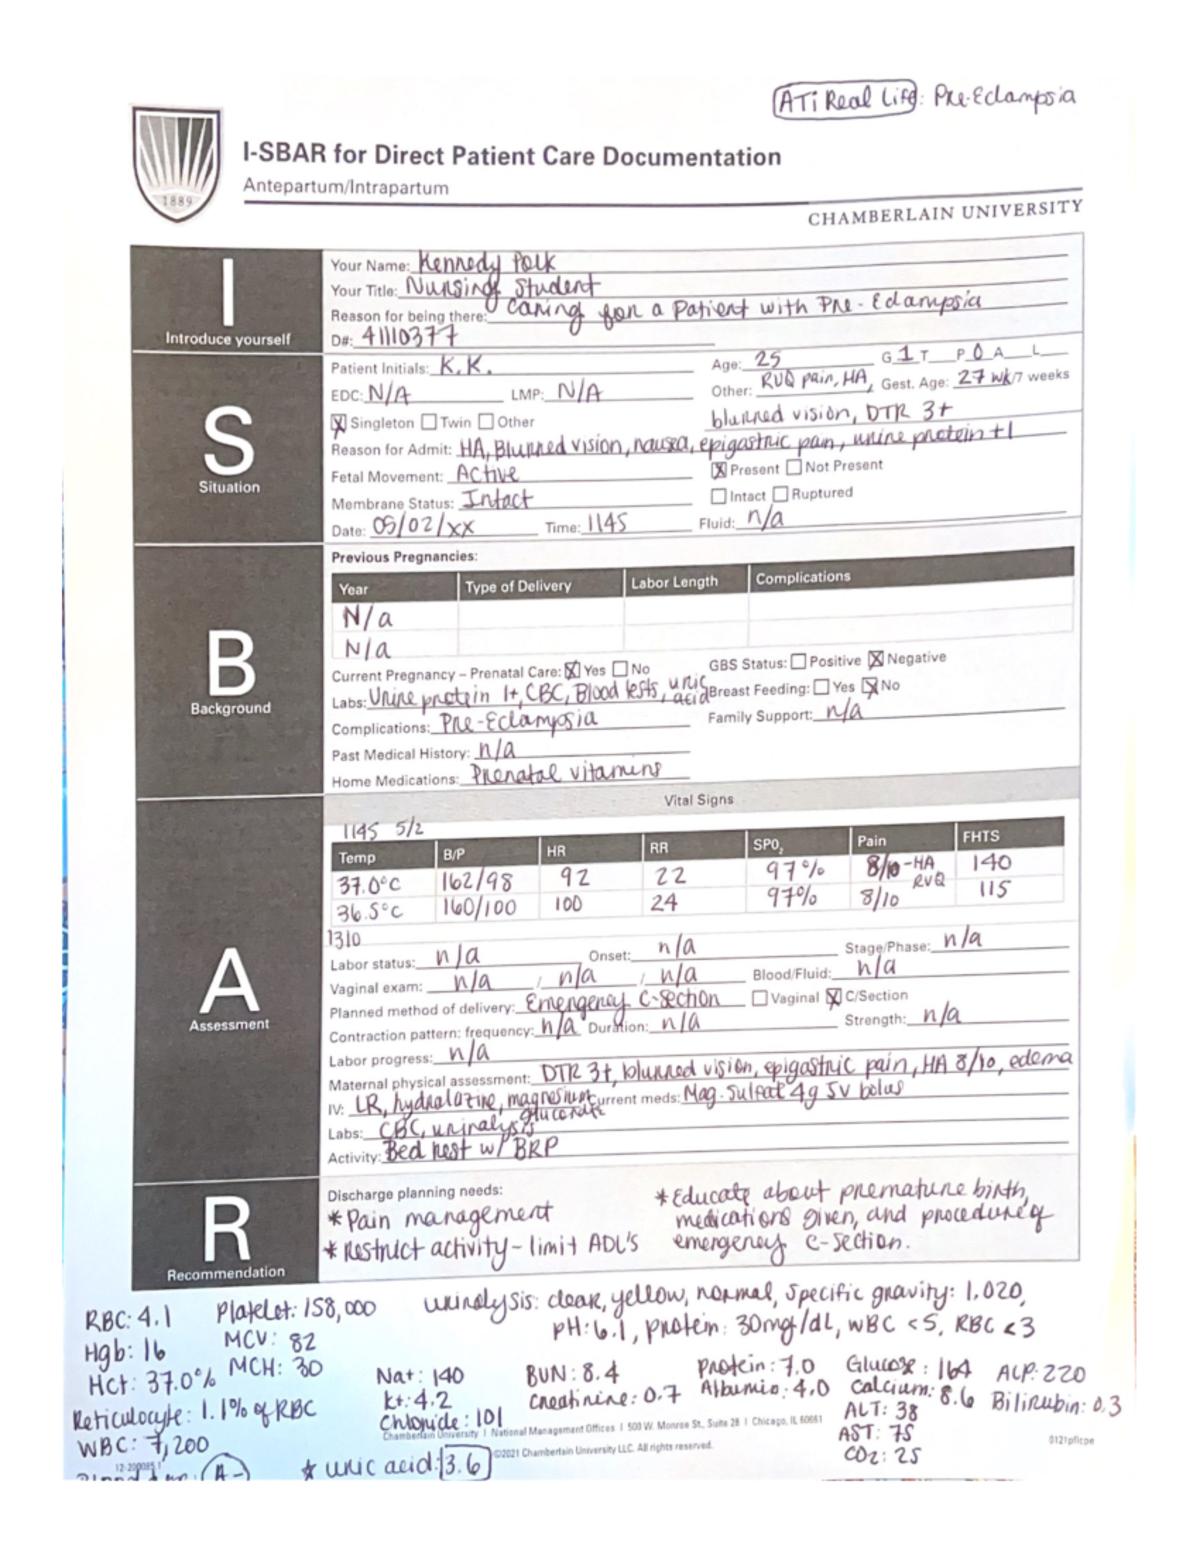 ATi Real Life: Pre-Eclampsia
I-SBAR for Direct Patient Care Documentation
Antepartum/Intrapartum
1889
CHAMBERLAIN UNIVERSITY
I
Introduce yourself
Your Name: Kennedy Polk
Your Title: Nursing Student
Reason for being there: caring for a patient with Pre-Eclampsia
D#: 41110377
S
Situation
Patient Initials: K.K. Age: 25 G 1 T P 0 A L
EDC: N/A LMP: N/A Other: RUQ pain, HA, Gest. Age: 27 wk/7 weeks
Singleton Twin Other blurred vision, DTR 3+
Reason for Admit: HA, Blurred vision, nausea, epigastric pain, urine protein +1
Fetal Movement: Active Present Not Present
Membrane Status: Intact Intact Ruptured
Date: 05/02/xx Time: 1145 Fluid: n/a
B
Background
Previous Pregnancies:
Year Type of Delivery Labor Length Complications
N/a
N/a
Current Pregnancy – Prenatal Care: Yes No GBS Status: Positive Negative
Labs: Urine protein 1+, CBC, Blood tests, uric acid Breast Feeding: Yes No
Complications: Pre-Eclampsia Family Support: n/a
Past Medical History: n/a
Home Medications: Prenatal vitamins
A
Assessment
Vital Signs
1145 5/2
Temp B/P HR RR SPO2 Pain FHTS
37.0°C 162/98 92 22 97% 8/10 -HA 140
36.5°C 160/100 100 24 97% 8/10 RUQ 115
1310
Labor status: n/a Onset: n/a Stage/Phase: n/a
Vaginal exam: n/a / n/a / n/a Blood/Fluid: n/a
Planned method of delivery: Emergency C-Section Vaginal C/Section
Contraction pattern: frequency: n/a Duration: n/a Strength: n/a
Labor progress: n/a
Maternal physical assessment: DTR 3+, blurred vision, epigastric pain, HA 8/10, edema
IV: LR, hydralazine, magnesium gluconate Current meds: Mag. Sulfeat 4g IV bolus
Labs: CBC, urinalysis
Activity: Bed rest w/ BRP
R
Recommendation
Discharge planning needs:
* Pain management
* Restrict activity - limit ADL'S
* Educate about premature birth,
medications given, and procedure of
emergency c-section.
RBC: 4.1 Platelet: 158,000 urinalysis: clear, yellow, normal, specific gravity: 1.020,
pH: 6.1, protein: 30mg/dL, WBC <5, RBC <3
Hgb: 16 MCV: 82
Hct: 37.0% MCH: 30
Reticulocyte: 1.1% of RBC
WBC: 7,200
A-
Nat: 140 BUN: 8.4 Protein: 7.0 Glucose: 164 ALP: 220
K+: 4.2 Creatinine: 0.7 Albumin: 4.0 Calcium: 8.6 Bilirubin: 0.3
Chloride: 101 ALT: 38
AST: 75
CO2: 25
Chamberlain University | National Management Offices | 500 W. Monroe St., Suite 28 | Chicago, IL 60661
©2021 Chamberlain University LLC. All rights reserved.
0121pflcpe
* uric acid: 3.6